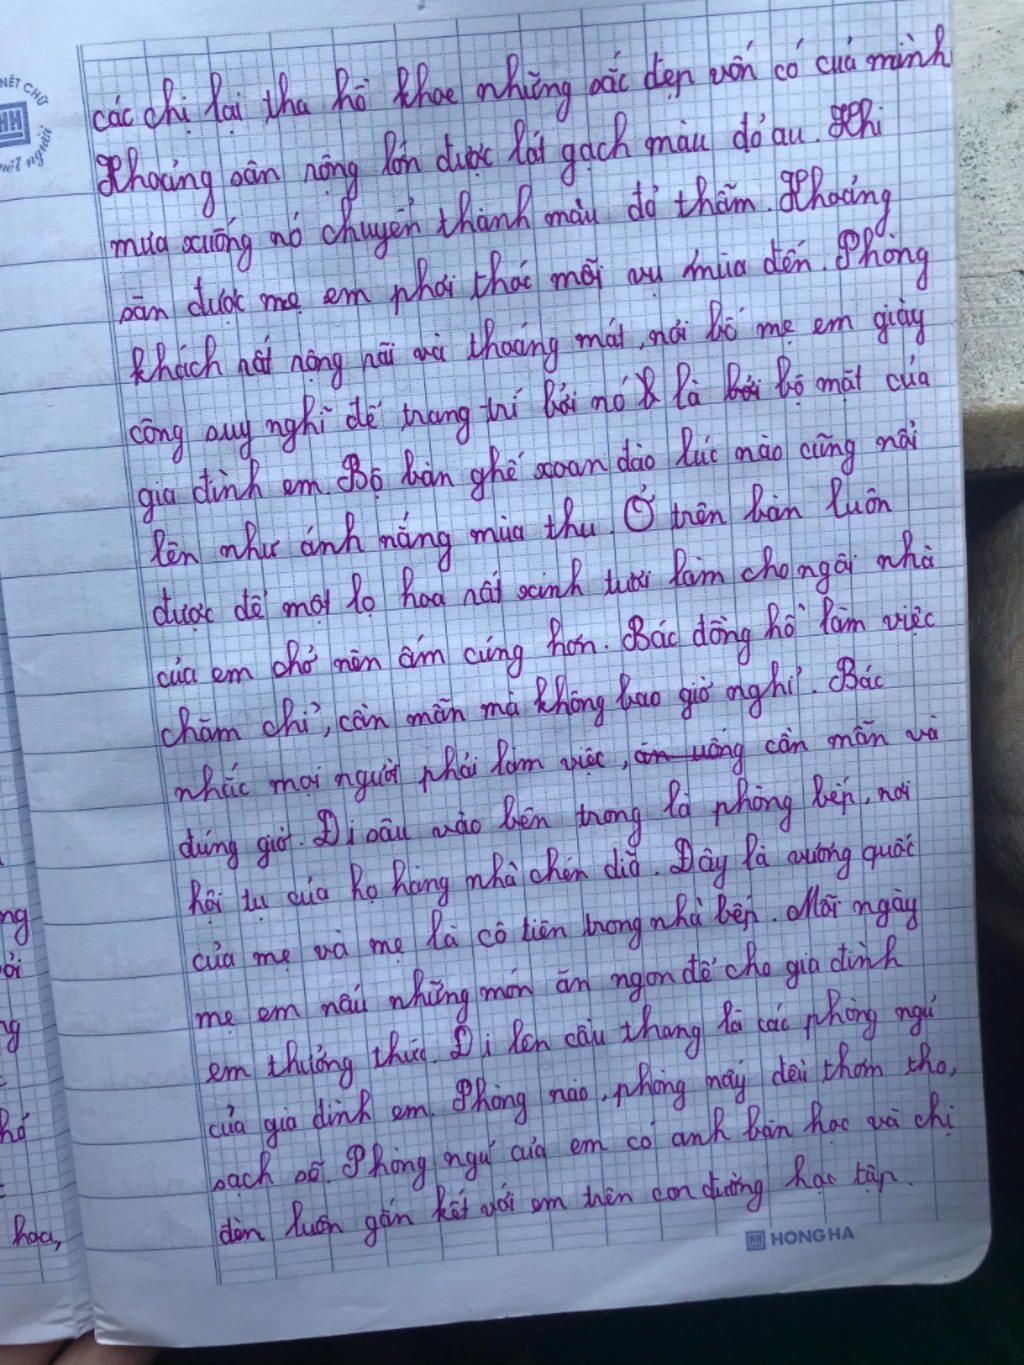 NÉT CHỮ
HH
nết người
các chị lại tha hồ khoe những sắc đẹp vốn có của mình
Khoảng sân rộng lớn được lát gạch màu đỏ au. Khi
mưa xuống nó chuyển thành màu đỏ thẫm. Khoảng
sân được mẹ em phơi thóc mỗi vụ mùa đến. Phòng
khách rất rộng rãi và thoáng mát, nơi bố mẹ em giày
công suy nghĩ để trang trí bởi nó là bộ mặt của
gia đình em. Bộ bàn ghế xoan đào lúc nào cũng nổi
lên như ánh nắng mùa thu. Ở trên bàn luôn
được để một lọ hoa rất xinh tươi làm cho ngôi nhà
của em chở nên ấm cúng hơn. Bác đồng hồ làm việc
chăm chỉ, cần mẫn mà không bao giờ nghỉ. Bác
nhắc mọi người phải làm việc, ăn uống cần mẫn và
đúng giờ. Đi sâu vào bên trong là phòng bếp, nơi
hội tụ của họ hàng nhà chén dĩa. Đây là vương quốc
của mẹ và mẹ là cô tiên trong nhà bếp. Mỗi ngày
mẹ em nấu những món ăn ngon để cho gia đình
em thưởng thức. Đi lên cầu thang là các phòng ngủ
của gia đình em. Phòng nào, phòng nấy đều thơm tho,
sạch sẽ. Phòng ngủ của em có anh bàn học và chị
đèn luôn gắn kết với em trên con đường học tập.
hoa,
HH HONG HA